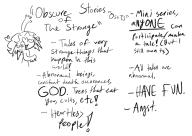 "Obscure Stories
Of The Strange"
- Tales of very
strange things that
happen in this
world!
- Abnormal beings,
GOD. Trees that eat
you, cults, etc!
- Heartless
people!
- Mini series,
ANYONE can
participate/make
a tale! (But I
- All tales are
abnormal.
- HAVE FUN.
- Angst.